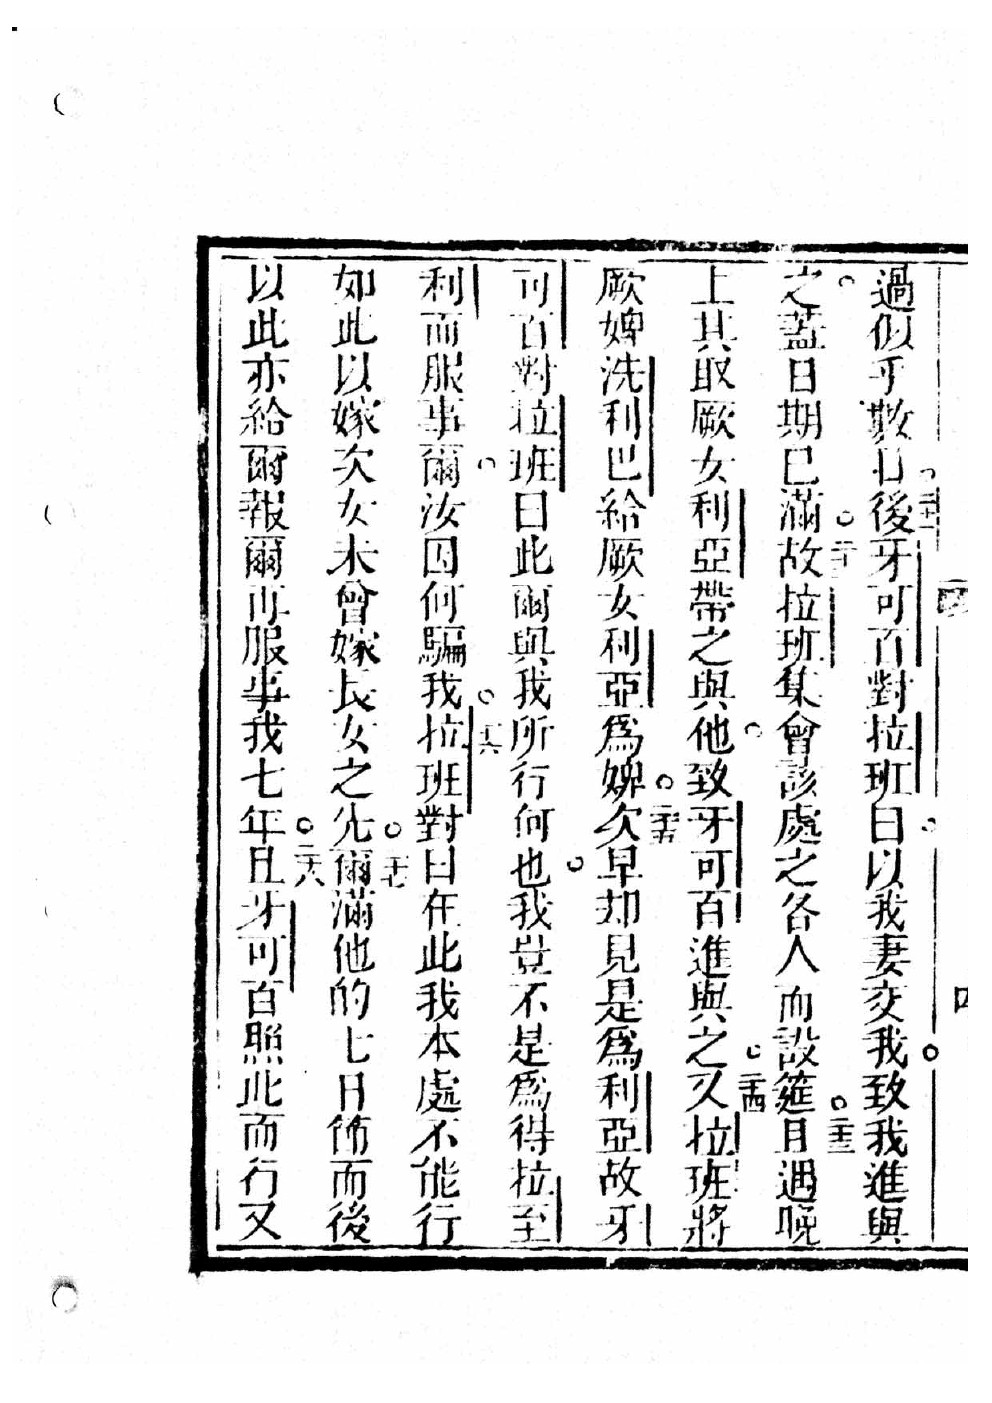 過似乎數日後牙可百對拉班曰以我妻交我致我進與
二十一
之蓋日期已滿故拉班集會該處之各人而設筵且遇晚
二十二
二十三
上其取厥女利亞帶之與他致牙可百進與之又拉班將
二十四
厥婢洗利巴給厥女利亞爲婢次早却見是爲利亞故牙
二十五
可百對拉班曰此爾與我所行何也我豈不是爲得拉至
利而服事爾汝因何騙我拉班對曰在此我本處不能行
二十六
如此以嫁次女未曾嫁長女之先爾滿他的七日節而後
二十七
以此亦給爾報爾再服事我七年且牙可百照此而行又
二十八